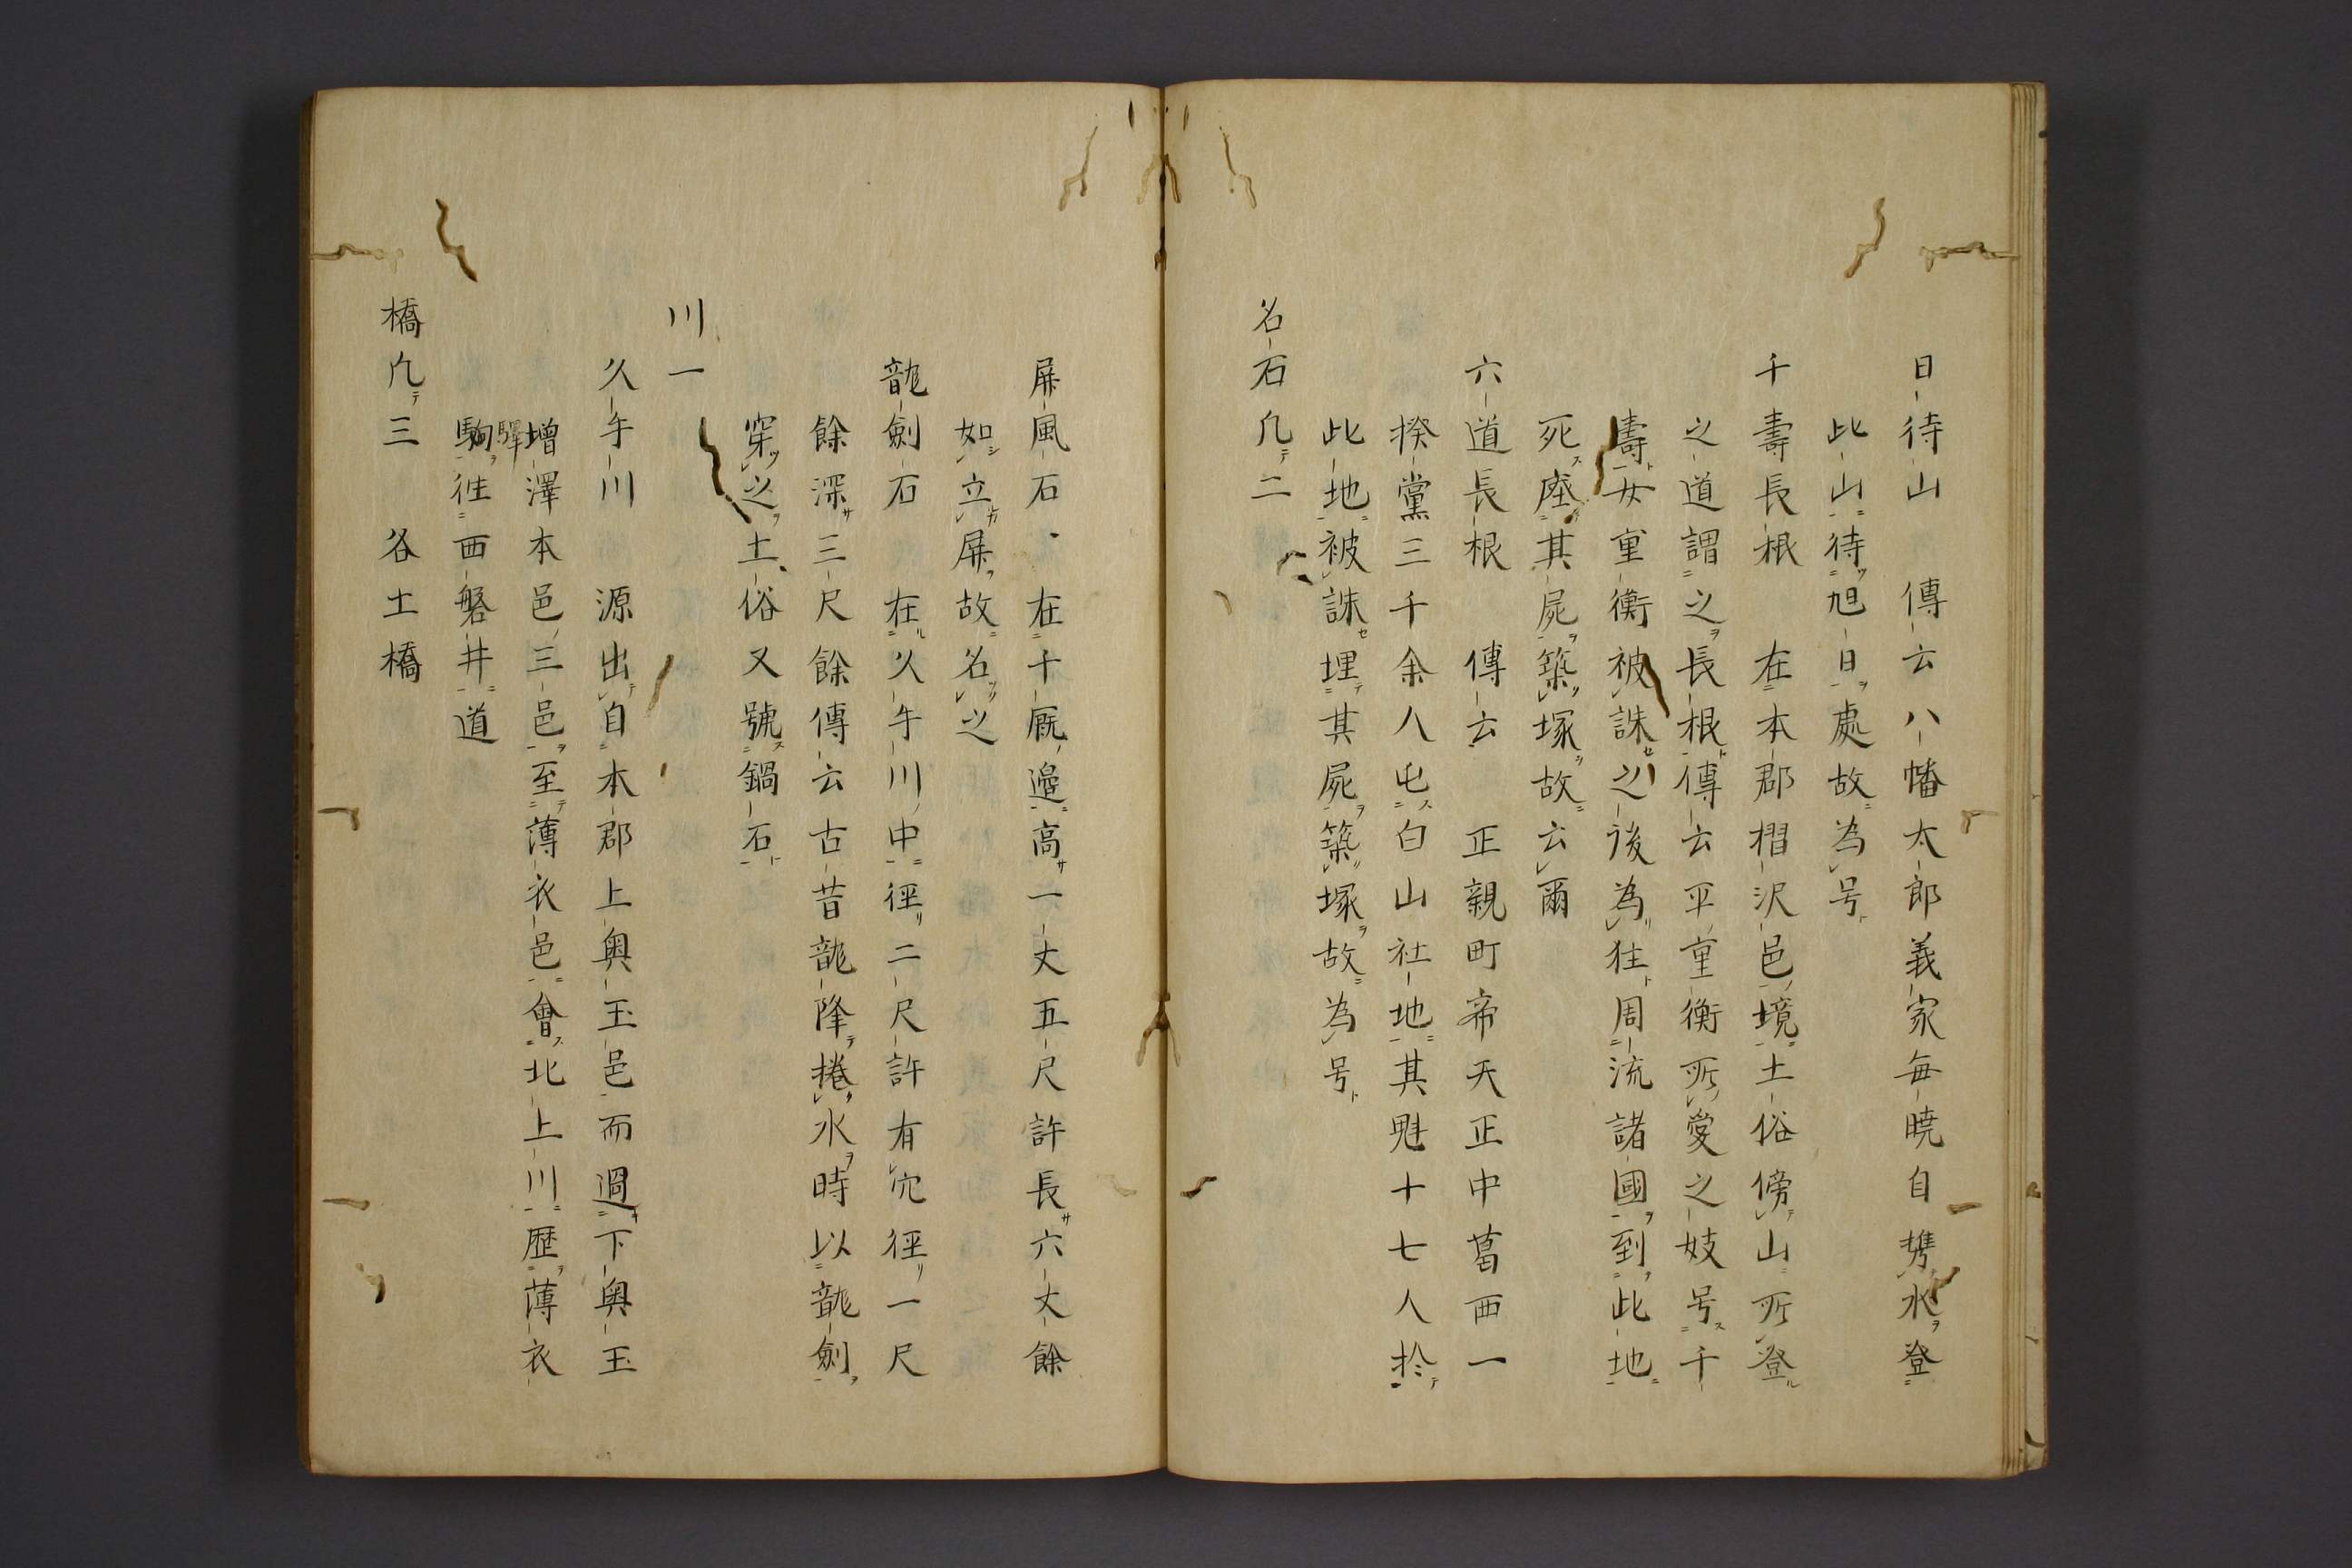 日待山　傳云八幡太郎義家毎曉自携水登
此山待旭日處故為号
千壽長根　在本郡摺沢邑境土俗傍山所登
之道謂之長根傳云平重衡所愛之妓号千
壽女重衡被誅之後為狂周流諸國到此地
死座其屍築塚故云爾
六道長根　傳云　正親町帝天正中葛西一
揆黨三千余人屯白山社地其魁十七人於
此地被誅埋其屍築塚故為号
名石凢二
屏風石　在千厩邉高一丈五尺許長六丈餘
如立屏故名之
龍劍石　在久午川中徑二尺許有穴徑一尺
餘深三尺餘傳云古昔龍降捲水時以龍劍
穿之土俗又號鍋石
川一
久午川　源出自本郡上奥玉邑而過下奥玉
増澤本邑三邑至薄衣邑會北上川歴薄衣
驛
駒徃西磐井道
橋凢三　各土橋